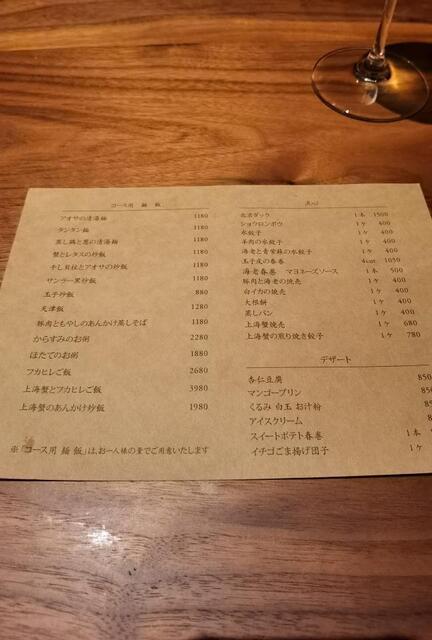 コース用 麺 飯
アオサの清湯麺 1180
タンタン麺 1180
蒸し鶏と葱の清湯麺 1180
蟹とレタスの炒飯 1180
干し貝柱とアオサの炒飯 1180
サンラー黒炒飯 1180
玉子炒飯 880
天津飯 1280
豚肉ともやしのあんかけ蒸しそば 1180
からすみのお粥 2280
ほたてのお粥 1880
フカヒレご飯 2680
上海蟹とフカヒレご飯 3980
上海蟹のあんかけ炒飯 1980
※「コース用 麺 飯」は、お一人様の量でご用意いたします
点心
北京ダック 1本 1500
ショウロンポウ 1ケ 400
水餃子 1ケ 400
羊肉の水餃子 1ケ 400
海老と青常蘇の水餃子 1ケ 400
玉子皮の春巻 4cut 1050
海老春巻 マヨネーズソース 1本 500
豚肉と海老の焼売 1ケ 400
白イカの焼売 1ケ 400
大根餅 1ケ 400
蒸しパン 1ケ 400
上海蟹焼売 1ケ 680
上海蟹の煎り焼き餃子 1ケ 780
デザート
杏仁豆腐 850
マンゴープリン
くるみ 白玉 お汁粉
アイスクリーム
スイートポテト春巻 1本
イチゴごま揚げ団子 1ケ